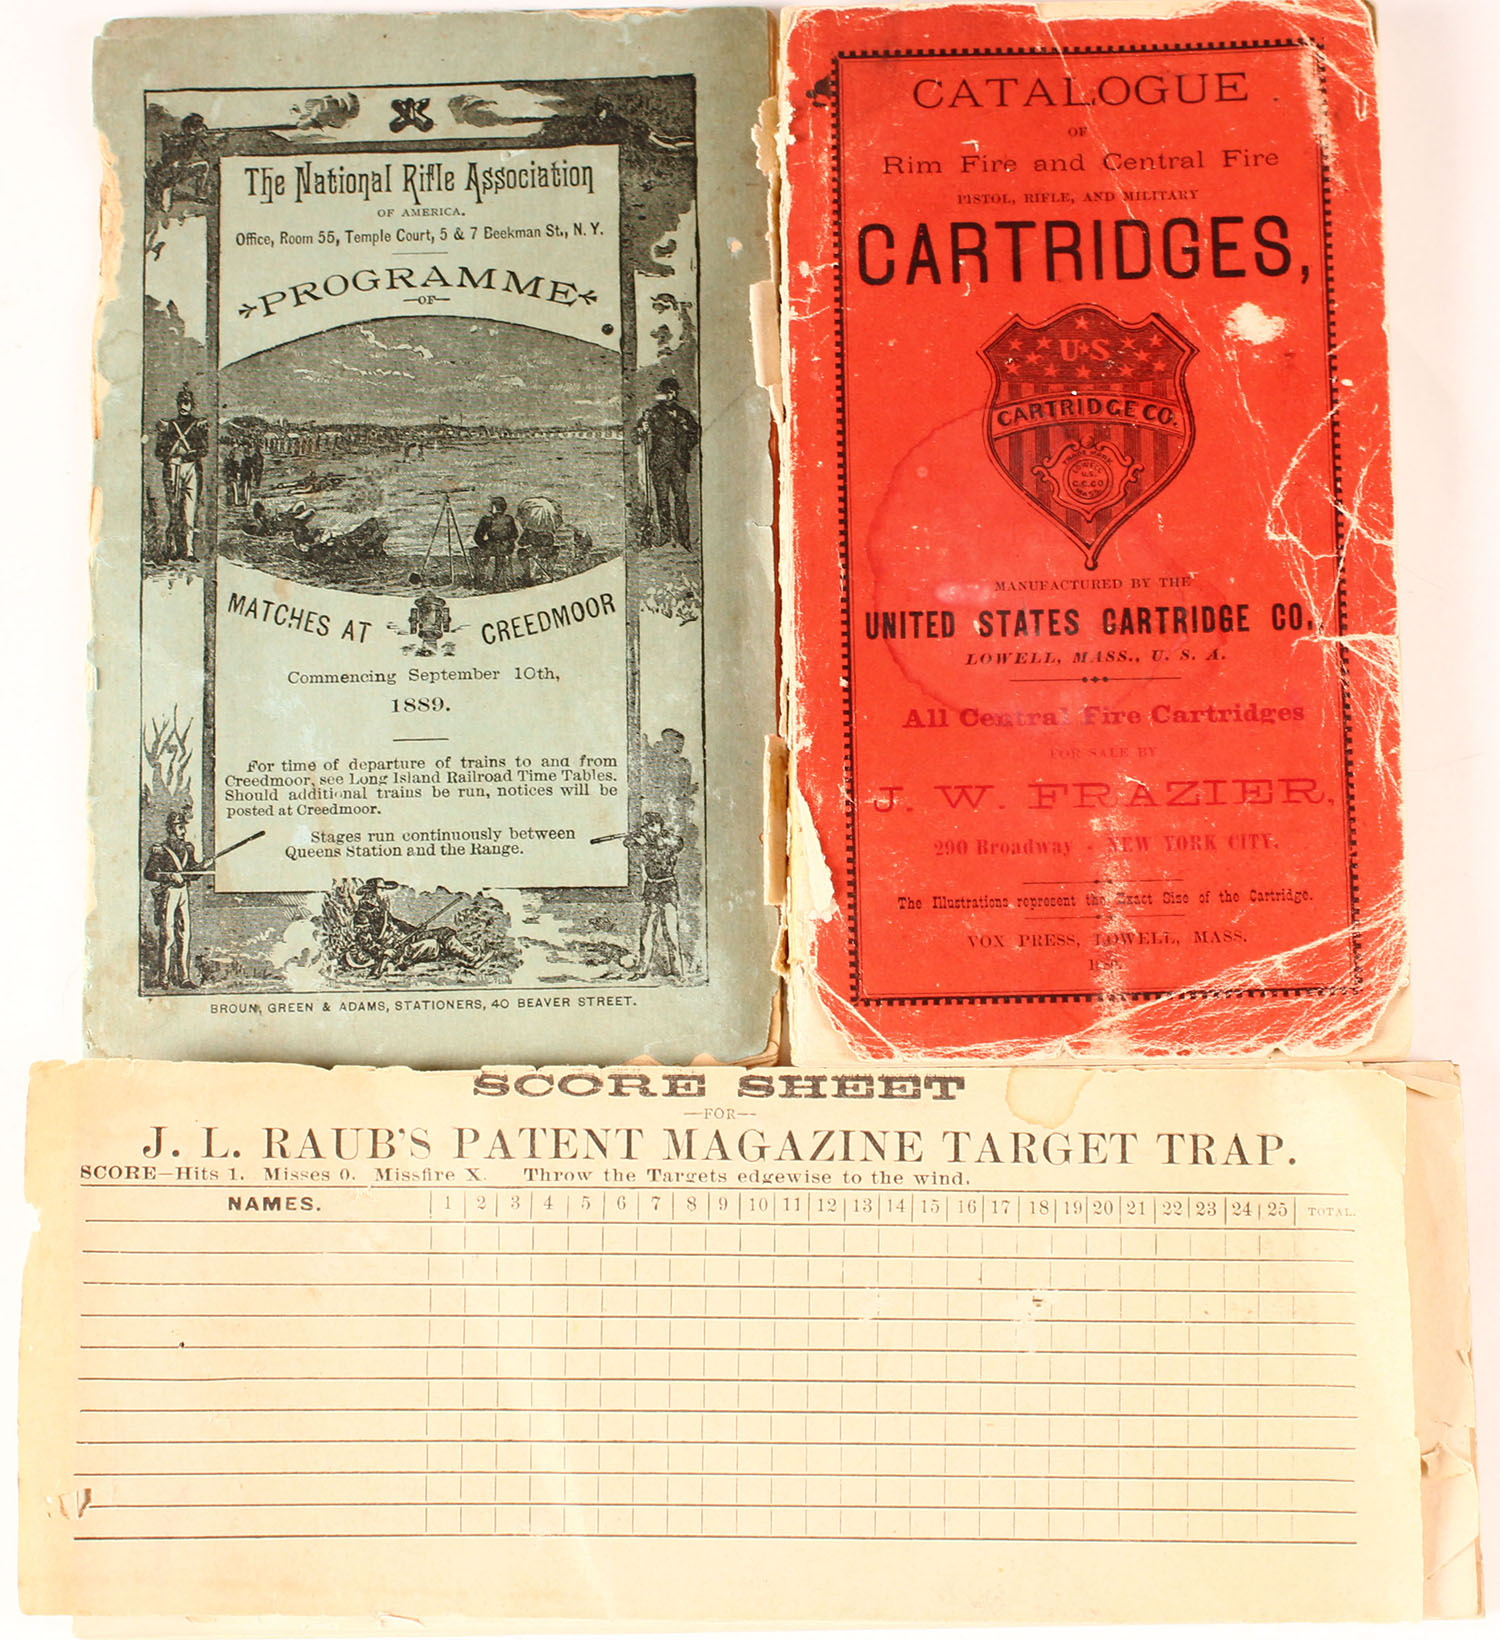 The National Rifle Association
OF AMERICA.
Office, Room 55, Temple Court, 5 & 7 Beekman St., N. Y.
PROGRAMME
—OF—
MATCHES AT CREEDMOOR
Commencing September 10th,
1889.
For time of departure of trains to and from
Creedmoor, see Long Island Railroad Time Tables.
Should additional trains be run, notices will be
posted at Creedmoor.
Stages run continuously between
Queens Station and the Range.
BROUN, GREEN & ADAMS, STATIONERS, 40 BEAVER STREET.
CATALOGUE
OF
Rim Fire and Central Fire
PISTOL, RIFLE, AND MILITARY
CARTRIDGES,
U★S
CARTRIDGE CO.
TRADE MARK
LOWELL
U.S.
C.C.CO
MASS.
MANUFACTURED BY THE
UNITED STATES CARTRIDGE CO.,
LOWELL, MASS., U. S. A.
All Central Fire Cartridges
FOR SALE BY
J. W. FRAZIER,
290 Broadway - NEW YORK CITY.
The Illustrations represent the Exact Size of the Cartridge.
VOX PRESS, LOWELL, MASS.
SCORE SHEET
—FOR—
J. L. RAUB'S PATENT MAGAZINE TARGET TRAP.
SCORE—Hits 1. Misses 0. Missfire X. Throw the Targets edgewise to the wind.
NAMES. 1 2 3 4 5 6 7 8 9 10 11 12 13 14 15 16 17 18 19 20 21 22 23 24 25 TOTAL.